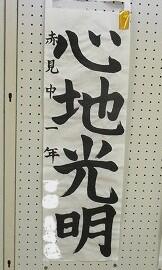 心地光明
赤見中一年